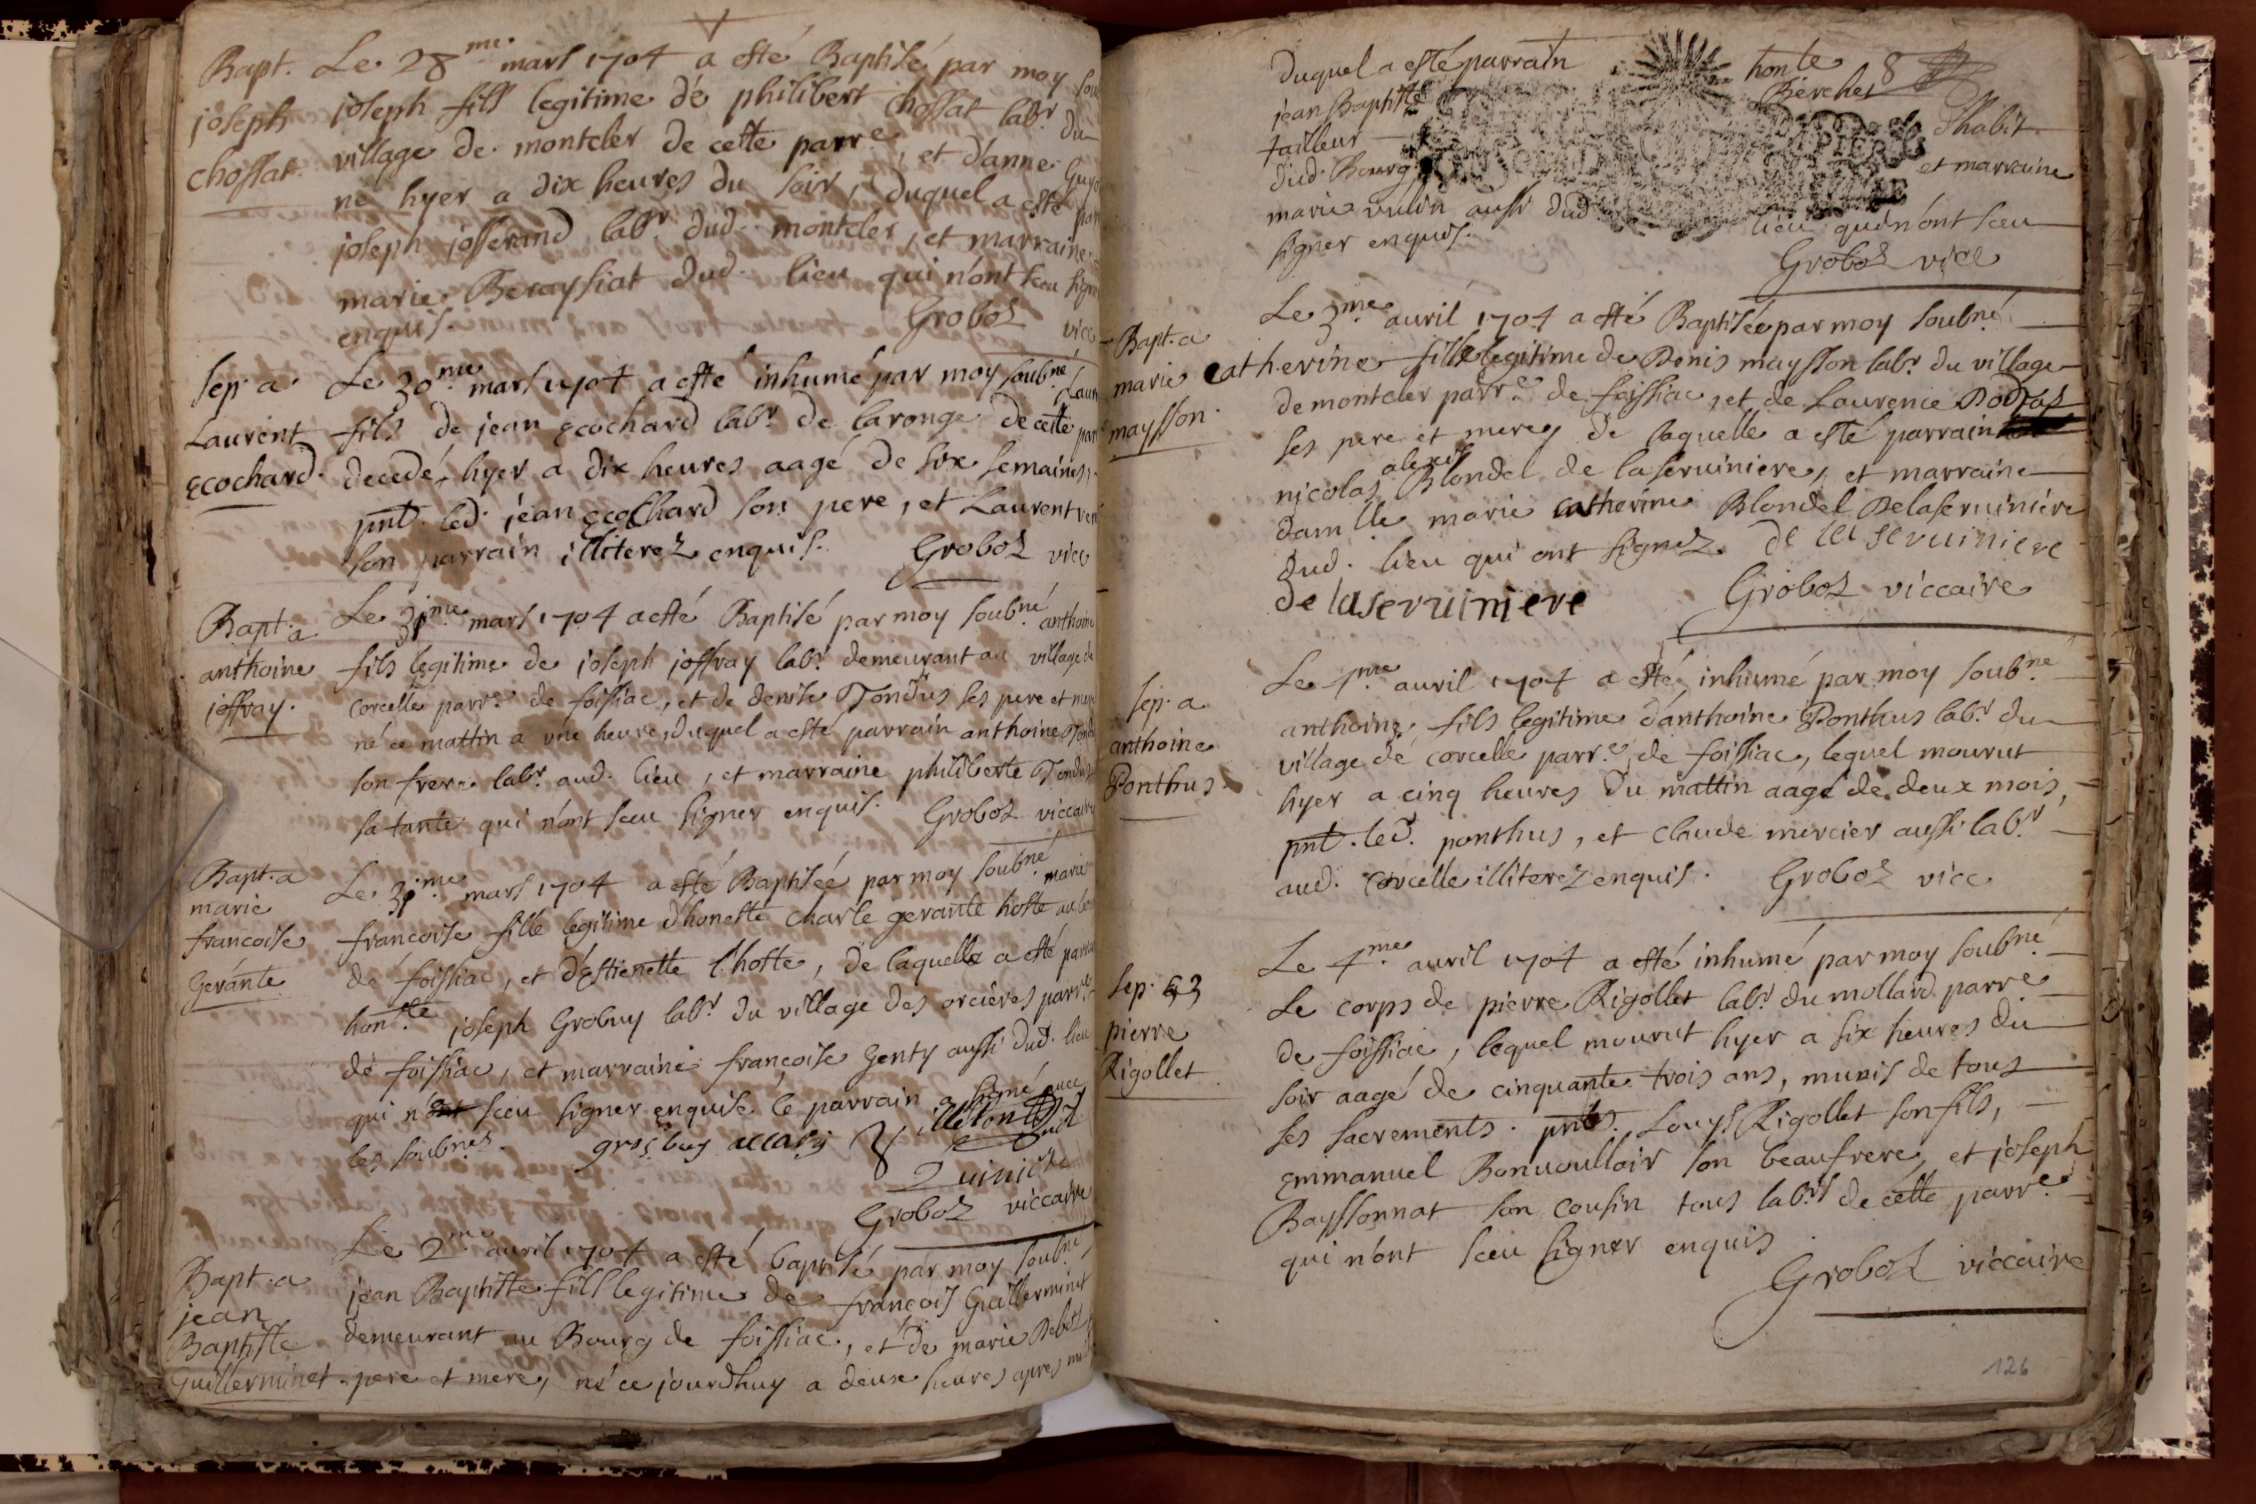 Bapt. Le 28.me mars 1704 a esté Baptisé par moy sou
joseph joseph fils legitime de philibert chossat lab.r du
chossat. village de montcler de cette parr.e, et d'anne Guyo
ne hyer a dix heures du soir, duquel a esté par
joseph josserand lab.r dud. montcler, et marraine
marie Berayssiat dud. lieu qui n'ont sceu signer
enquis. Groboz vicc
Sep. a Le 30.me mars 1704 a esté inhumé par moy soub.né Laur
Laurent fils de jean Ecochard lab.r de laronge de cette parr
Ecochard. decedé hyer a dix heures aagé de six semaines,
pnt. led. jean Ecochard son pere, et Laurent
son parrain illiterez enquis. Groboz vicc
Bapt. a Le 31.me mars 1704 a esté Baptisé par moy soub.né anthoine
anthoine fils legitime de joseph joffray lab.r demeurant au village de
joffray. corcelle parr.e de foissiac, et de denise Tondus ses pere et mere
né ce mattin a une heure, duquel a esté parrain anthoine Tondu
son frere lab.r aud. lieu, et marraine philiberte Tondus
sa tante qui n'ont sceu signer enquis. Groboz viccaire
Bapt. a Le 31.me mars 1704 a esté Baptisée par moy soub.né marie
marie
francoise francoise fille legitime d'honeste charle gerante hoste au
Gerante de foissiac, et d'estienette l'hoste, de laquelle a esté parra
hon.ste joseph Grobuy lab.r du village des orcieres parr.e
de foissiac, et marraine francoise Genty aussi dud. lieu
qui n'ont sceu signer enquise le parrain a signé avec
les soub.nez. grosbuy accary
Groboz viccaire
Le 2.me avril 1704 a esté baptisé par moy soub.né
Bapt. a jean Baptiste fils legitime de francois Guillerminet
jean
Baptiste demeurant au Bourg de foissiac, et de marie Debost
Guillerminet pere et mere, né ce jourdhuy a deux heures apres mi
duquel a esté parrain hon.te
jean Baptiste Berchet
tailleur d'habit
dud. Bourg et marraine
marie vulin aussi dud. lieu qui n'ont sceu
signer enquis.
Groboz vicc
Le 3.me avril 1704 a esté Baptisée par moy soub.né
Bapt. a
marie catherine fille legitime de Denis maysson lab.r du village
maysson. de montcler parr.e de foissiac, et de Laurence Bodras
ses pere et mere, de laquelle a esté parrain
alexis
nicolas Blondel de laserviniere, et marraine
dam.lle marie catherine Blondel Delaserviniere
dud. lieu qui ont signez. de la serviniere
de laserviniere Groboz viccaire
Le 4.me avril 1704 a esté inhumé par moy soub.né
Sep. a
anthoine anthoine fils legitime d'anthoine Ponthus lab.r du
Ponthus. village de corcelle parr.e de foissiac, lequel mourut
hyer a cinq heures du mattin aagé de deux mois,
pnt. led. ponthus, et claude mercier aussi lab.r
aud. corcelle illiterez enquis. Groboz vicc
Le 4.me avril 1704 a esté inhumé par moy soub.né
Sep. 53 Le corps de pierre Rigollet lab.r du mollard parr.e
pierre de foissiac, lequel mourut hyer a six heures du
Rigollet soir aagé de cinquante trois ans, munis de tous
ses sacrements. pnts. Louys Rigollet son fils,
Emmanuel Bonvoulloir son beaufrere, et joseph
Bayssonnat son cousin tous lab.rs de cette parr.e
qui n'ont sceu signer enquis
Groboz viccaire
126